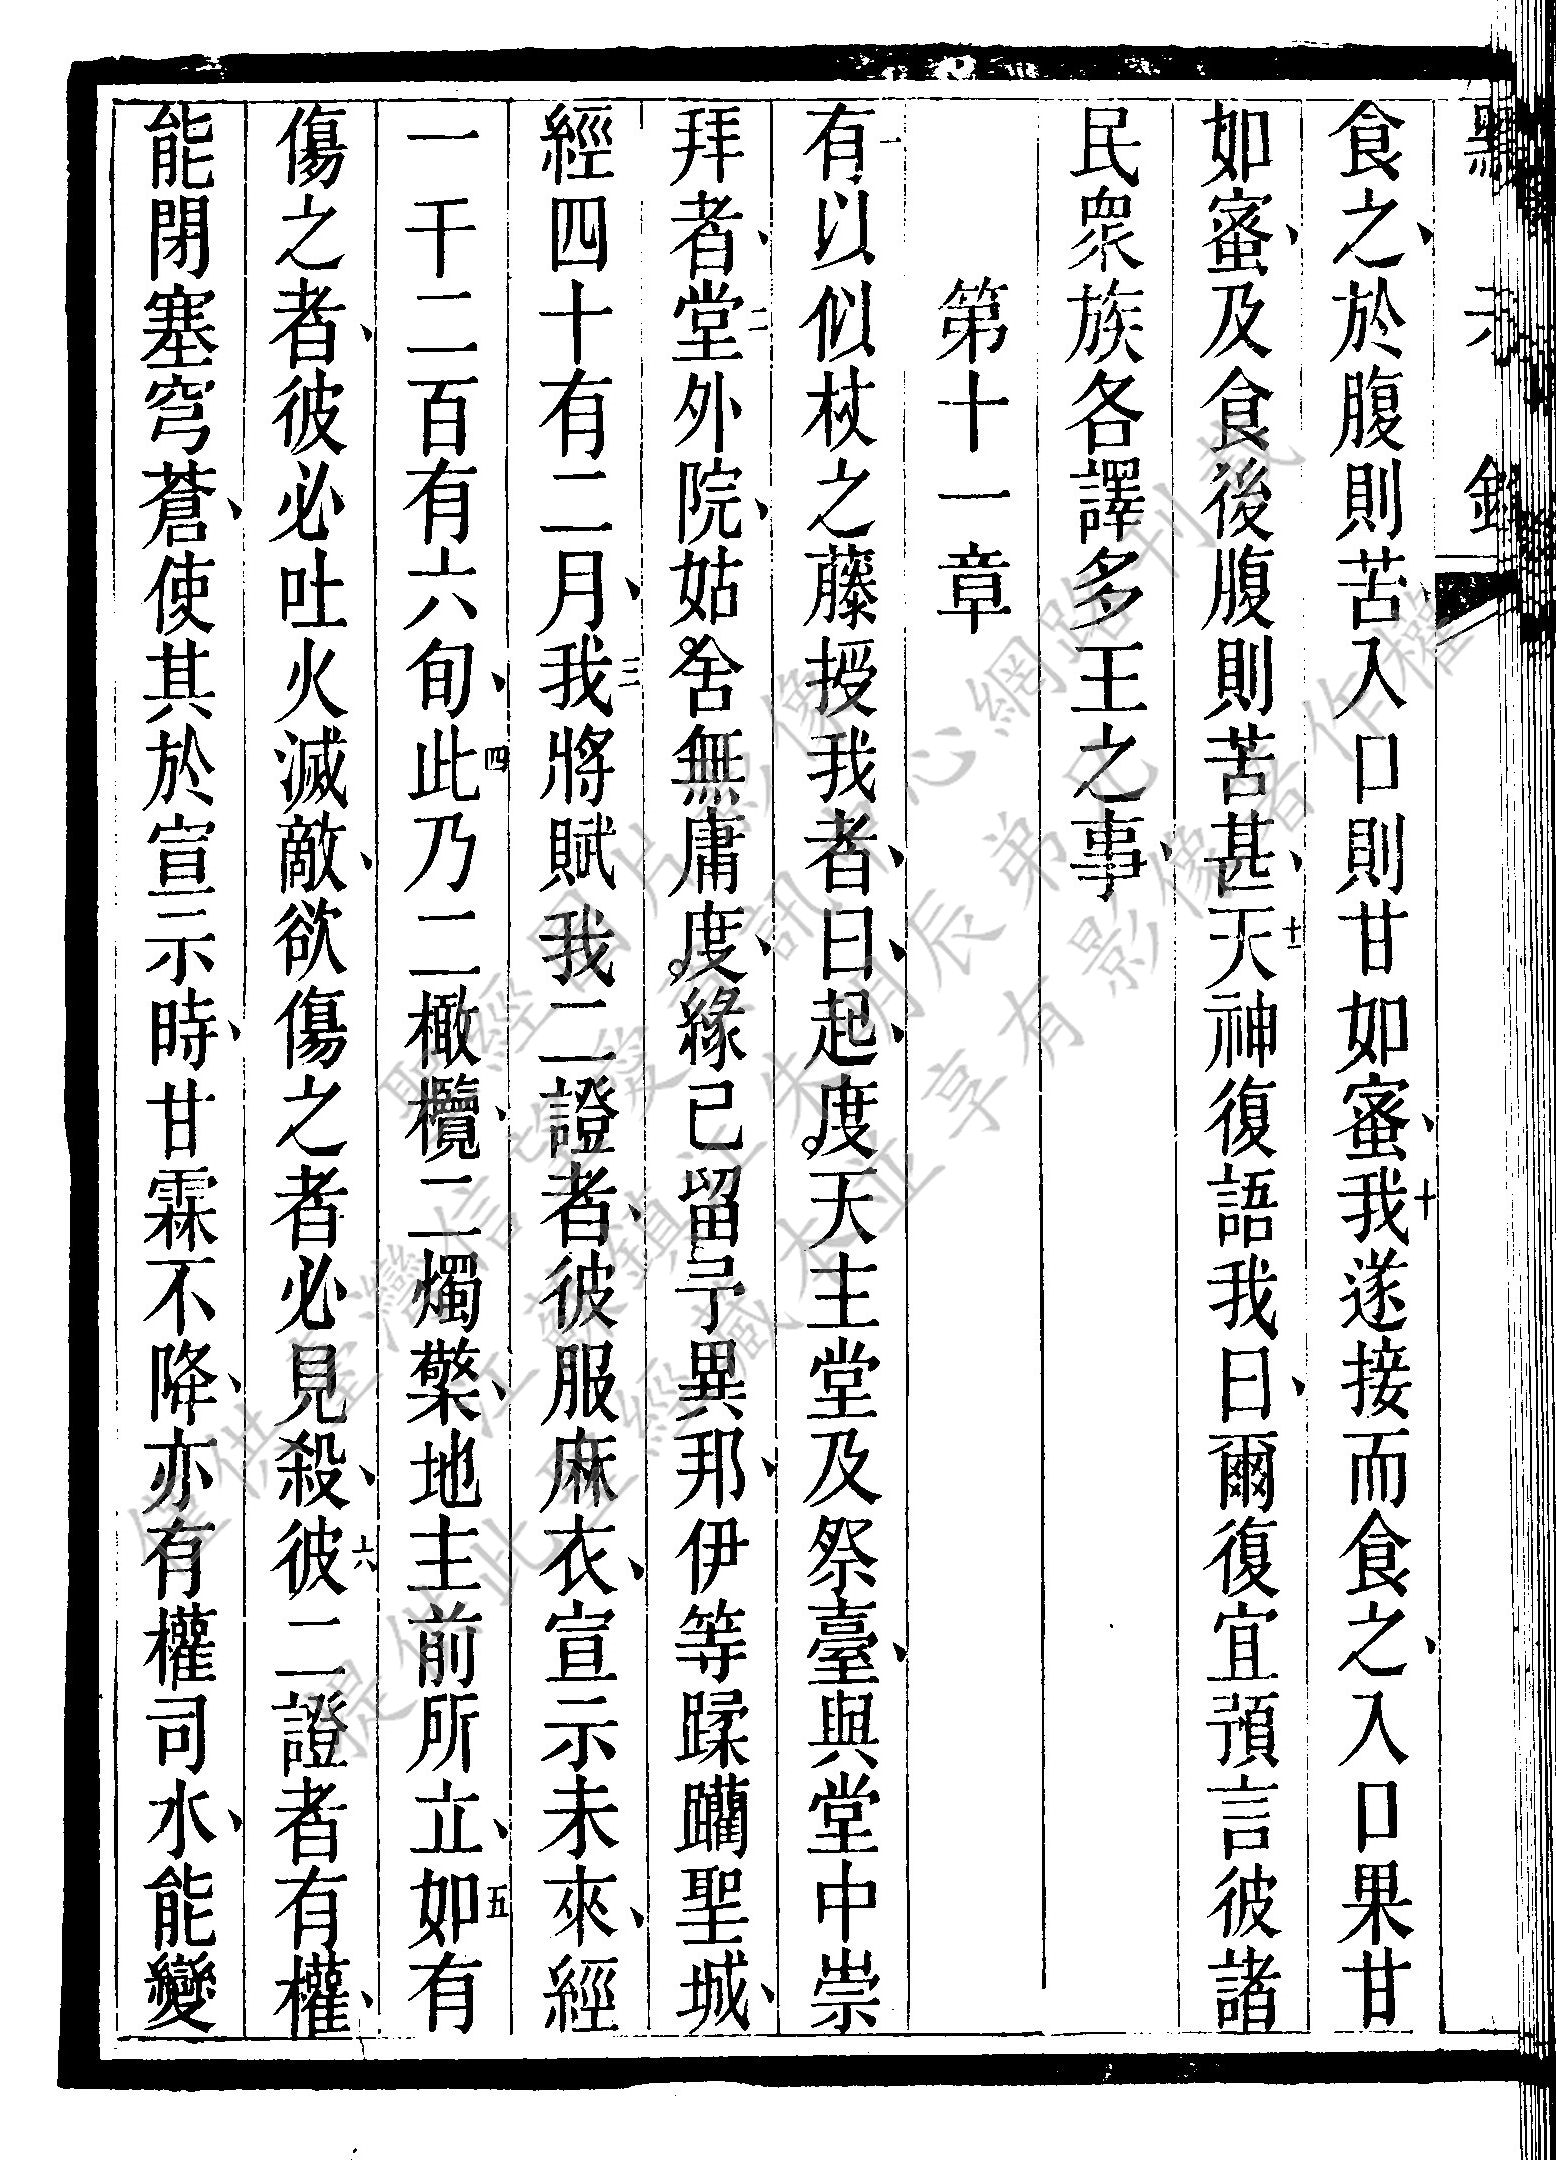 顯示錄
食之、於腹則苦、入口則甘如蜜、十我遂接而食之、入口果甘
如蜜、及食後腹則苦甚、十一天神復語我曰、爾復宜預言彼諸
民衆族各譯多王之事、
第十一章
一有以似杖之藤授我者、曰、起、度天主堂及祭臺、與堂中崇
拜者、二堂外院、姑舍無庸度、緣已留予異邦、伊等蹂躪聖城、
經四十有二月、三我將賦我二證者、彼服麻衣、宣示未來、經
一千二百有六旬、四此乃二橄欖、二燭檠、地主前所立、五如有
傷之者、彼必吐火滅敵、欲傷之者必見殺、六彼二證者有權、
能閉塞穹蒼、使其於宣示時、甘霖不降、亦有權司水、能變